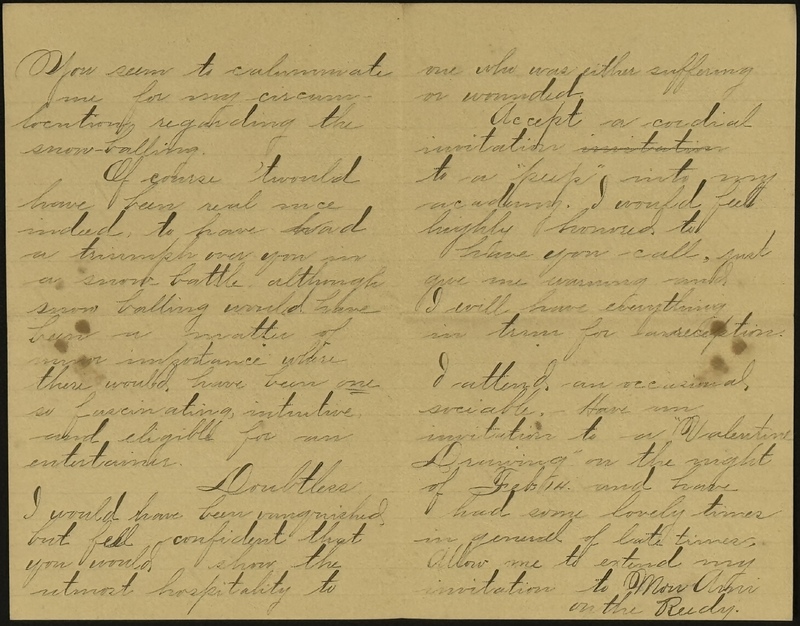 You seem to calumniate
me for my circum-
locution, regarding the
snow-balling.
Of course 'twould
have been real nice
indeed, to have had
a triumph over you in
a snow battle although
snow balling would have
been a matter of
minor importance where
there would have been one
so fascinating, intuitive,
and eligible for an
entertainer.
Doubtless
I would have been vanquished,
but feel confident that
you would show the
utmost hospitality to
one who was either suffering
or wounded.
Accept a cordial
invitation invitation
to a "peep" into my
academy. I would feel
highly honored to
have you call, just
give me warning and
I will have everything
in trim for a reception.
I attend an occasional
sociable. Have an
invitation to a "Valentine
Drawing" on the night
of Feb 14. and have
had some lovely times
in general of late times.
Allow me to extend my
invitation to Mon
on the Reedy.